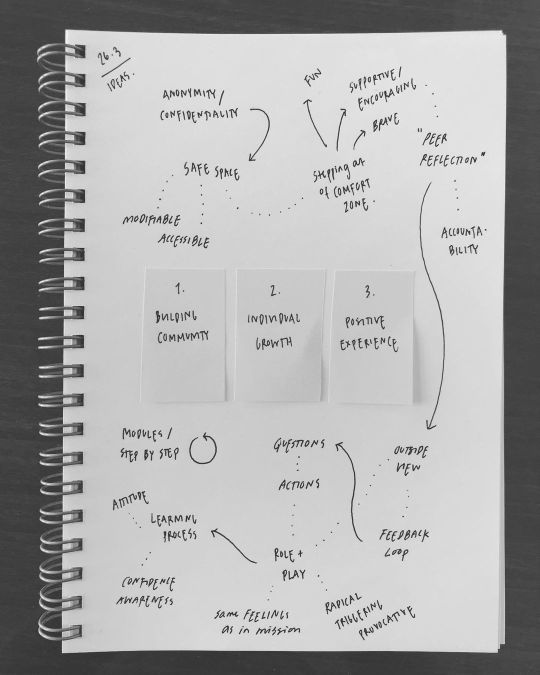 26.3
IDEAS.
ANONYMITY/
CONFIDENTIALITY
SAFE SPACE
MODIFIABLE
ACCESSIBLE
FUN
SUPPORTIVE/
ENCOURAGING
BRAVE
Stepping out
of COMFORT
ZONE.
"PEER
REFLECTION"
ACCOUNTA-
BILITY
1.
BUILDING
COMMUNITY
2.
INDIVIDUAL
GROWTH
3.
POSITIVE
EXPERIENCE
MODULES/
STEP BY STEP
ATTITUDE
LEARNING
PROCESS
CONFIDENCE
AWARENESS
QUESTIONS
ACTIONS
ROLE +
PLAY
same FEELINGS
as in mission
RADICAL
TRIGGERING
PROVOCATIVE
OUTSIDE
VIEW
FEEDBACK
LOOP